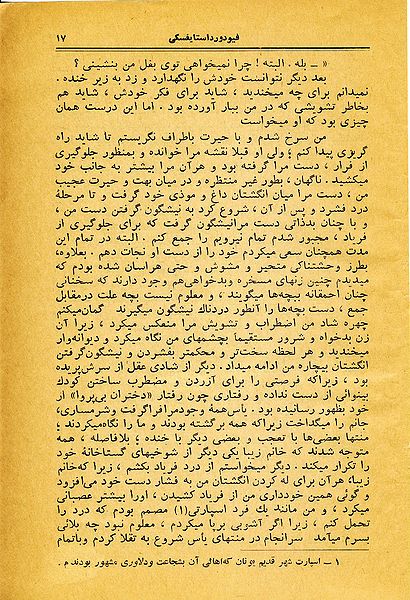 فیودورداستایفسکی ۱۷
« ــ بله . البته ! چرا نمیخواهی توی بغل من بنشینی ؟
بعد دیگر نتوانست خودش را نگهدارد و زد به زیر خنده .
نمیدانم برای چه میخندید ، شاید برای فکر خودش ، شاید هم
بخاطر تشویشی که در من ببار آورده بود . اما این درست همان
چیزی بود که او میخواست
من سرخ شدم و با حیرت باطراف نگریستم تا شاید راه
گریزی پیدا کنم ؛ ولی او قبلا نقشه مرا خوانده و بمنظور جلوگیری
از فرار ، دست مرا گرفته بود و هرآن مرا بیشتر به جانب خود
میکشید . ناگهان ، بطور غیر منتظره و در میان بهت و حیرت عجیب
من ، دست مرا میان انگشتان داغ و موذی خود گرفت و تا مرحلهٔ
درد فشرد و پس از آن ، شروع کرد به نیشگون گرفتن دست من ،
و با چنان بدذاتی دست مرانیشگون گرفت که برای جلوگیری از
فریاد ، مجبور شدم تمام نیرویم را جمع کنم . البته در تمام این
مدت همچنان سعی میکردم خود را از دست او نجات دهم . بعلاوه،
بطرز وحشتناکی متحیر و مشوش و حتی هراسان شده بودم که
میدیدم چنین زنهای مسخره وبدخواهی‌هم وجود دارند که سخنانی
چنان احمقانه ببچه‌ها میگویند ، و معلوم نیست بچه علت درمقابل
جمع ، دست بچه‌ها را آنطور دردناك نیشگون میگیرند گمان‌میکنم
چهره شاد من اضطراب و تشویش مرا منعکس میکرد ، زیرا آن
زن بدخواه و شرور مستقیماً بچشمهای من نگاه میکرد و دیوانه‌وار
میخندید و هر لحظه سخت‌تر و محکمتر بفشردن و نیشگون‌گرفتن
انگشتان بیچاره من ادامه میداد. دیگر از شادی عقل از سرش‌پریده
بود ، زیراکه فرصتی را برای آزردن و مضطرب ساختن کودك
بینوائی از دست نداده و رفتاری چون رفتار «دختران بی‌پروا» از
خود بظهور رسانیده بود . یاس‌همهٔ وجودمرافراگرفت وشرمساری،
جانم را میگداخت زیراکه همه برگشته بودند و ما را نگاه‌میکردند ؛
منتها بعضی‌ها با تعجب و بعضی دیگر با خنده ؛ بلافاصله ، همه
متوجه شدند که خانم زیبا یکی دیگر از شوخیهای گستاخانهٔ خود
را تکرار میکند . دیگر میخواستم از درد فریاد بکشم ، زیرا که‌خانم
زیبا، هرآن برای له کردن انگشتان من به فشار دست خود می‌افزود
و گوئی همین خودداری من از فریاد کشیدن ، اورا بیشتر عصبانی
میکرد ، و من مانند یك فرد اسپارتی(۱) مصمم بودم که درد را
تحمل کنم ، زیرا اگر آشوبی برپا میکردم ، معلوم نبود چه بلائی
بسرم میآمد سرانجام در منتهای یاس شروع به تقلا کردم وباتمام
۱ ــ اسپارت شهر قدیم یونان که‌اهالی آن بشجاعت ودلاوری مشهور بودند م .